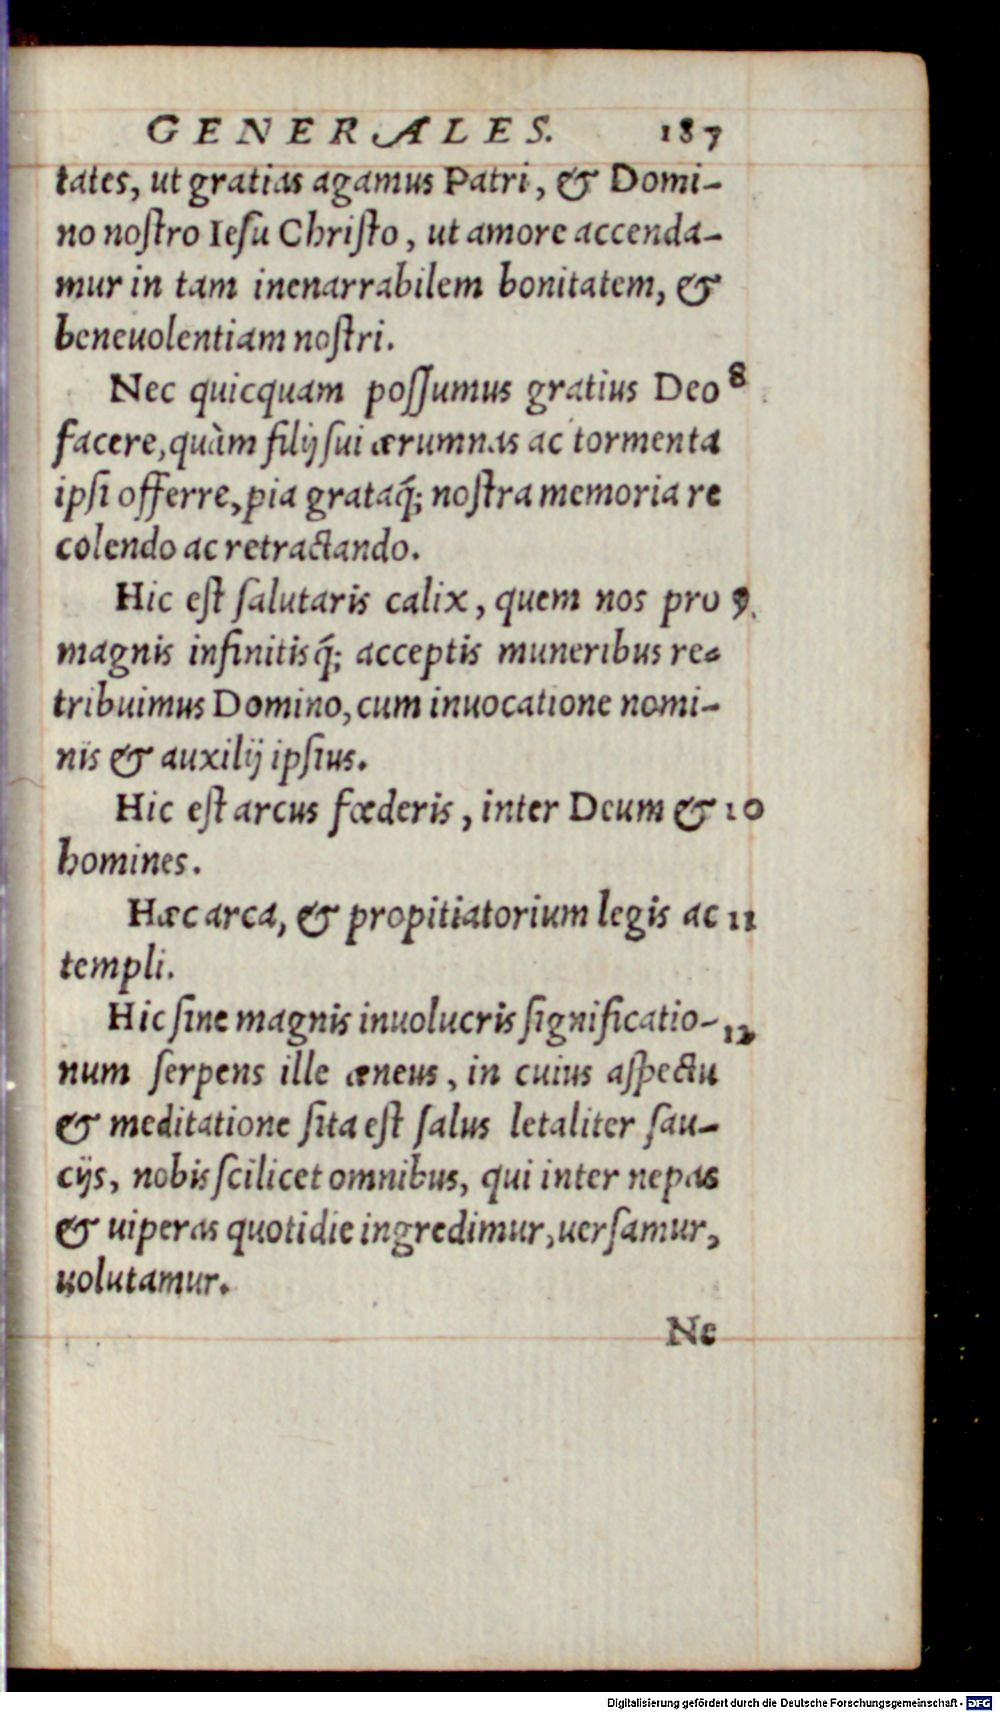 GENERALES. 187
tates, ut gratias agamus Patri, & Domi-
no noſtro Ieſu Chriſto, ut amore accenda-
mur in tam inenarrabilem bonitatem, &
beneuolentiam noſtri.
Nec quicquam poſſumus gratius Deo 8
facere, quàm filij ſui ærumnas ac tormenta
ipſi offerre, pia grataq́; noſtra memoria re
colendo ac retractando.
Hic eſt ſalutaris calix, quem nos pro 9.
magnis infinitisq́; acceptis muneribus re-
tribuimus Domino, cum inuocatione nomi-
nis & auxilij ipſius.
Hic eſt arcus fœderis, inter Deum & 10
homines.
Hæc arca, & propitiatorium legis ac 11
templi.
Hic ſine magnis inuolucris ſignificatio- 12
num ſerpens ille æneus, in cuius aſpectu
& meditatione ſita eſt ſalus letaliter ſau-
cijs, nobis ſcilicet omnibus, qui inter nepas
& uiperas quotidie ingredimur, uerſamur,
uolutamur.
Ne
Digitalisierung gefördert durch die Deutsche Forschungsgemeinschaft - DFG